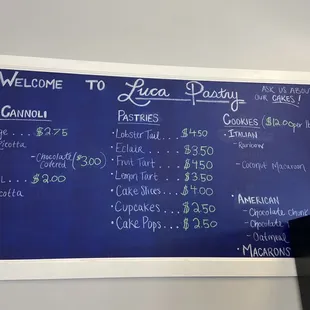 WELCOME TO Luca Pastry
ASK US ABOUT
OUR CAKES!
CANNOLI
$2.75
- Chocolate
Covered ($3.00)
$2.00
PASTRIES
• Lobster Tail.... $4.50
• Eclair...... $3.50
• Fruit Tart.... $4.50
• Lemon Tart.... $3.50
• Cake Slices... $4.00
• Cupcakes... $2.50
• Cake Pops... $2.50
COOKIES ($12.00 per
• ITALIAN
- Rainbow
- Coconut Macaroon
• AMERICAN
- Chocolate Chunk
- Chocolate
- Oatmeal
• MACARONS